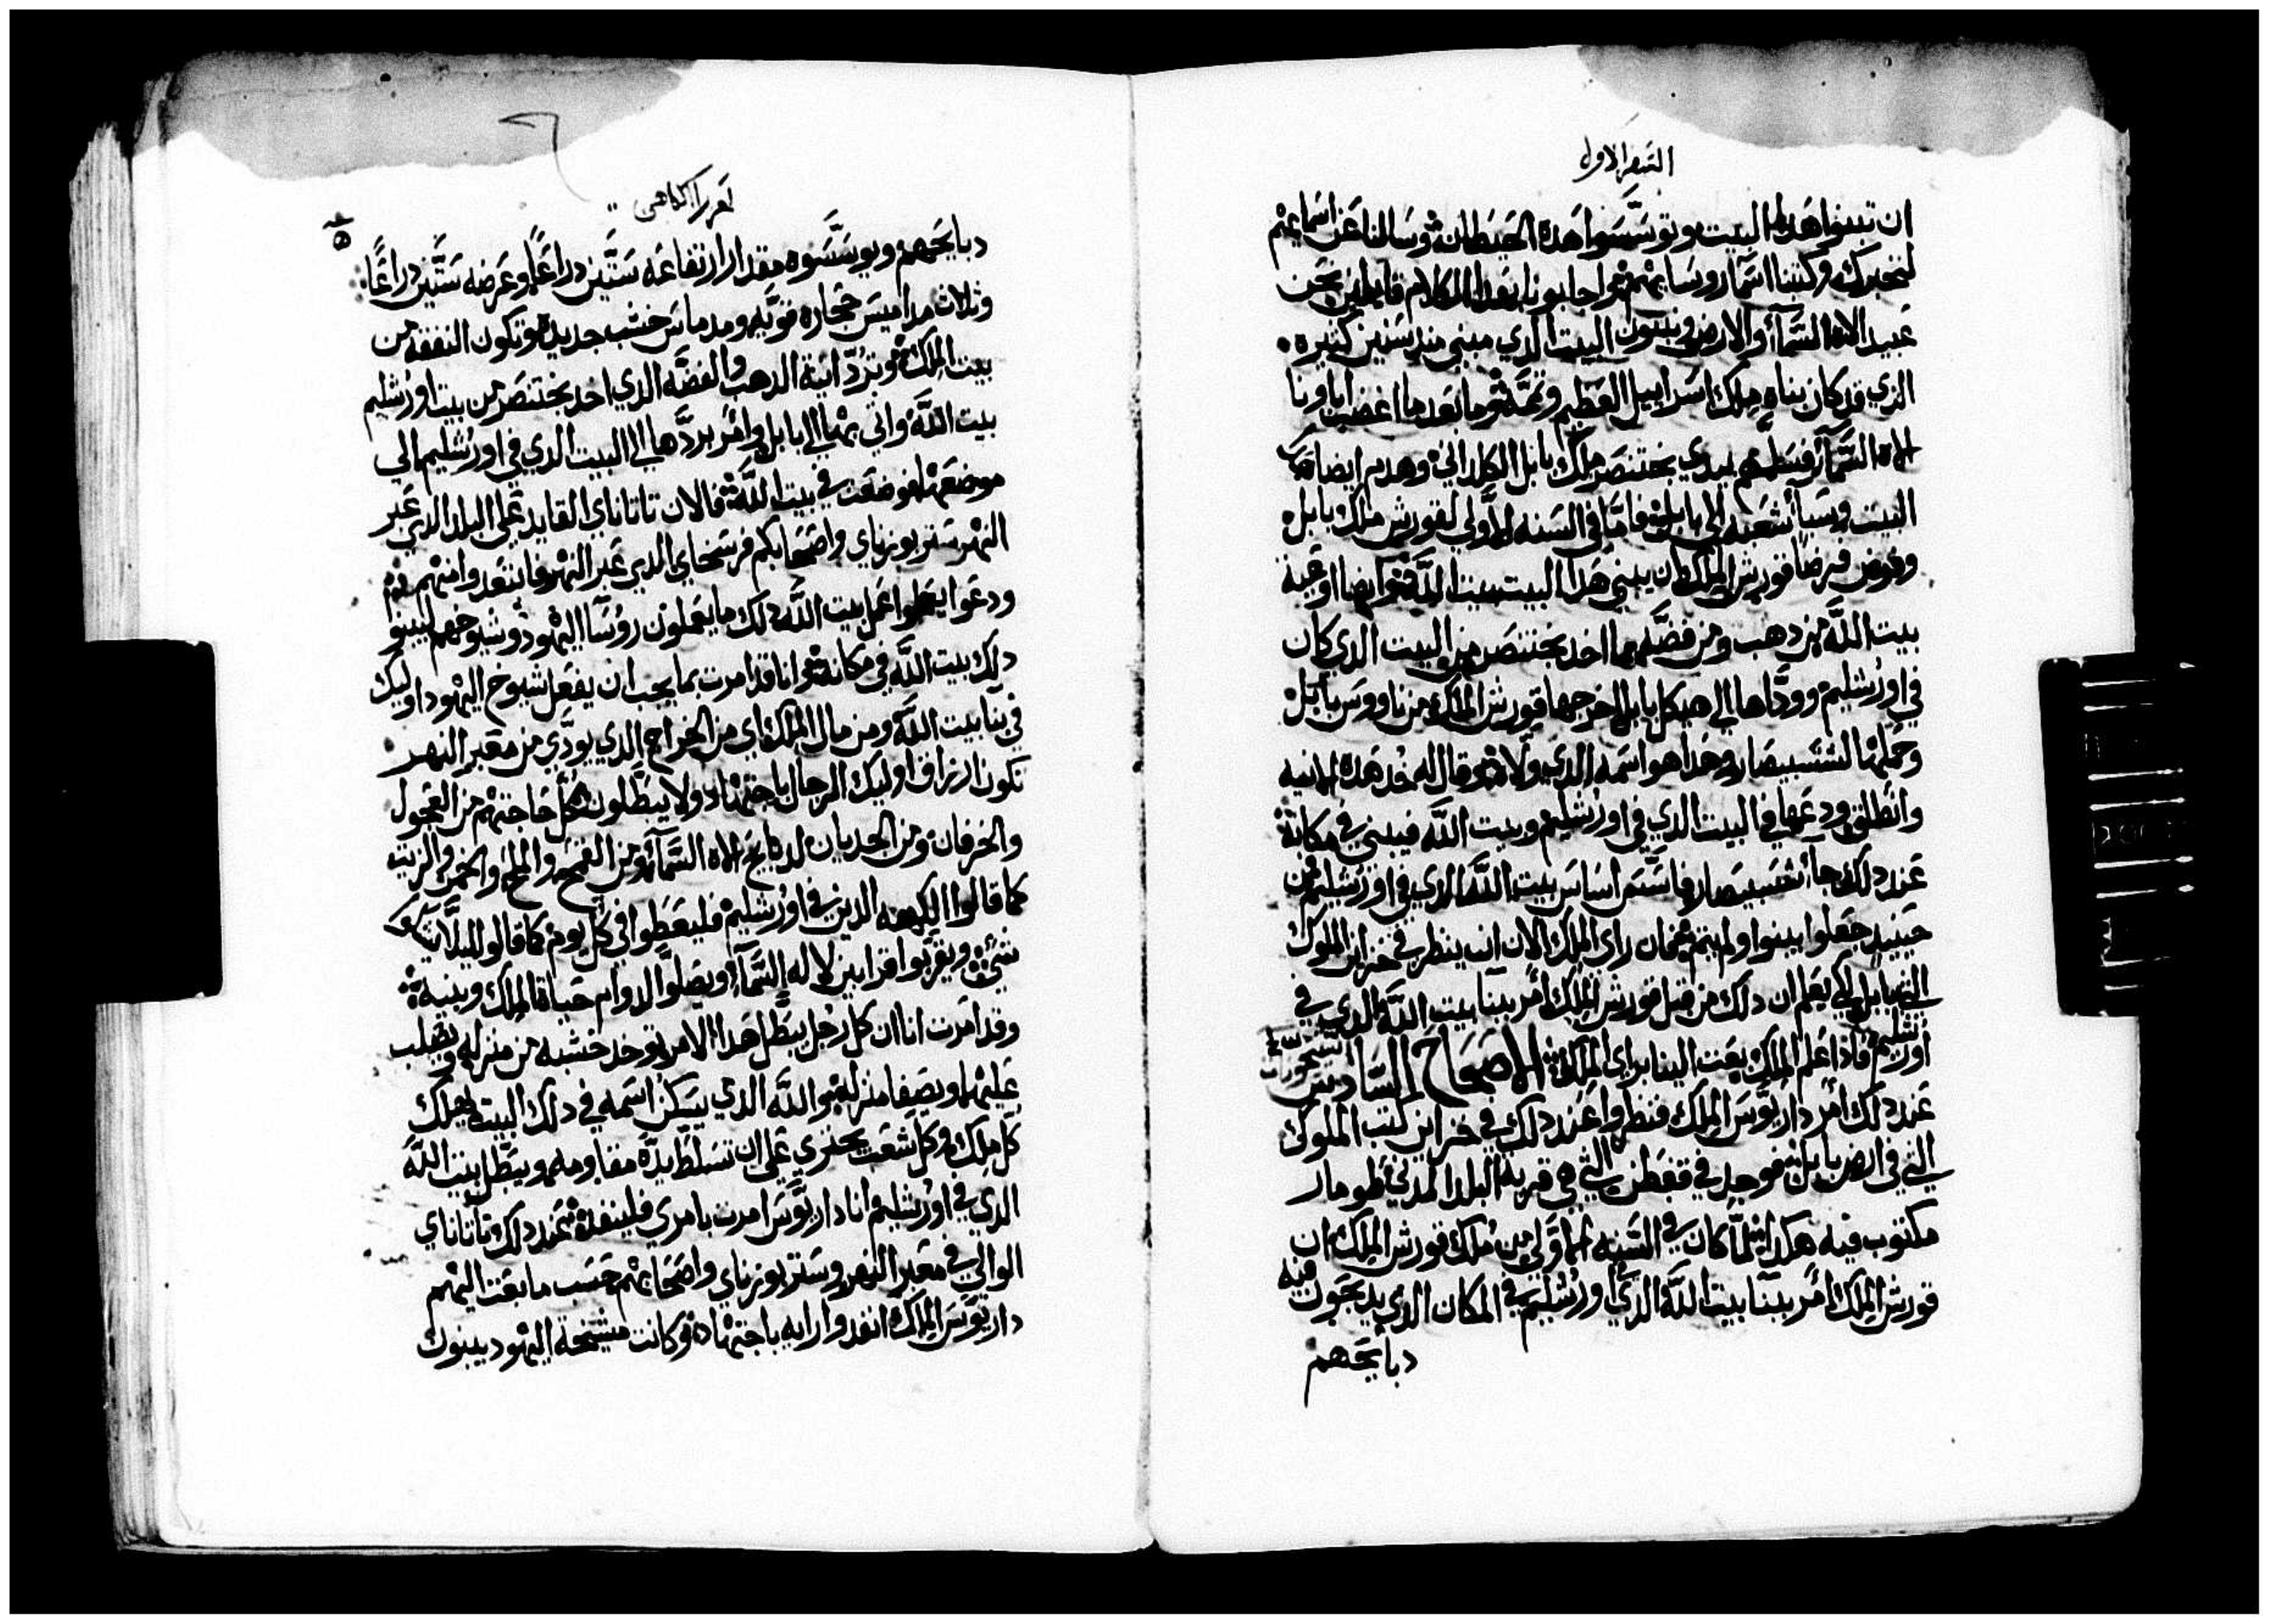 السفر الاول
ان تبنوا هذا البيت وتوسسوا هذه الحيطان وسالنا عن اسمايهم
لنخبرك وكتبنا اسما روسايهم واجابونا بهذا الكلام قايلين نحن
عبيد الاه السما والارض ونبنون البيت الذي مبني مند سنين كثيره
الذي قد كان بناه ملك اسراييل العظيم وتممه وما بعد ما اغضب اباونا
الاه السما فسلمهم ليدي بختنصر ملك بابل الكلداني وهدم ايضا هدا
البيت وسبا شعبه الى بابل فاما في السنه الاولي لقورش ملك بابل
وفرض فرضا قورش الملك ان يبني هدا البيت بيت الله وايضا اوعية
بيت الله من دهب ومن فضه مما اخد بختنصر من البيت الدي كان
في اورشليم ووداها الى هيكل بابل اخرجها قورش الملك من ناووس بابل
وحملها لششبيصار وهدا هو اسمه الدي ولاه وقال له خد هده الانيه
وانطلق ودعها في البيت الدي في اورشليم وبيت الله فيبني في مكانه
عند دلك جا ششبيصار فاسس اساس بيت الله الدي في اورشليم فمن
حينيد جعلوا يبنوا ولم يتم فان راى الملك الان انه ينظر في خزاين الملوك
التي ببابل لكي يعلم ان دلك من قبل قورش الملك امر ببنا بيت الله الدي في
اورشليم فاذا علم الملك بعت الينا براي الملك الاصحاح السادس
عند دلك امر داريوس الملك فنظروا عند دلك في خزاين كتب الملوك
التي في ارض بابل فوجد في قفطن التي هي قرية البلد المدني طومار
مكتوب فيه هكدا لما كان في السنه الاولى من ملك قورش الملك ان
قورش الملك امر ببنا بيت الله الدي اورشليم في المكان الدي يدبحون فيه
دبايحهم
لعزرا الكاهن
دبايحهم ويوسسوه مقدار ارتفاعه ستين دراعا وعرضه ستين دراعا
وثلاث مداميس حجاره قويه ومدماس خشب جديد وتكون النفقه من
بيت الملك وترد انية الدهب والفضه الدي اخد بختنصر من بيت اورشليم
بيت الله واتي بها الى بابل وامر بردها الى البيت الدي في اورشليم الي
موضعها فوضعت في بيت الله فالان تاتاناي القايد على البلد الدي عبر
النهر شتر بوزناي واصحابكم فرسخاي الدي عبر النهر فابتعدوا منهم
ودعوا يعملوا عمل بيت الله دلك ما يعملون روسا اليهود وشيوخهم ليبنوا
دلك بيت الله في مكانه وانا قد امرت بما يجب ان يفعل شيوخ اليهود اوليك
في بنا بيت الله ومن مال الملك اي من الخراج الدي يودي من معبر النهر
تكون ارزاق اوليك الرجال باجتهاد ولا يبطلون كل حاجتهم من العجول
والخرفان ومن الجديان لدبايح الاه السما ومن القمح والملح والخمر والزيت
كما قالوا الكهنه الدين في اورشليم فليعطوا في كل يوم كما قالوا ليلا يشكو
شي ويقربوا قرابين لاله السما ويصلوا لدوام حياة الملك وبنيه
وقد امرت انا ان كل رجل يبطل هدا الامر توخد خشبه من منزله ويصلب
عليها ويصفا منزله والله الدي يسكن اسمه في دلك البيت يهلك
كل ملك وكل شعب يجتري على ان تسلط يده مقاومه ويبطل بيت الله
الدي في اورشليم وانا داريوس امرت بامري فلينفد عند دلك تاتاناي
الوالي في معبر النهر وشتر بوزناي واصحابهم حسب ما بعت اليهم
داريوس الملك انفدوا رايه باجتهاد وكانت مشيخة اليهود يبنون